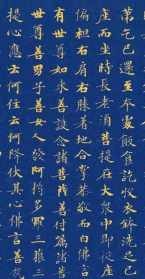 第乞已還至本處飯食訖收衣鉢洗足已
座而坐時長老湏菩提在大衆中即從座
偏袒右肩右膝著地合掌恭敬而白佛言
有世尊如来善護念諸菩薩善付囑諸
世尊善男子善女人發阿耨多羅三藐三
提心應云何住云何降伏其心佛言善